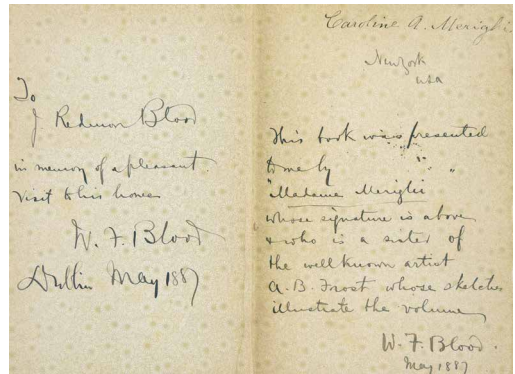 To
J Redmon Blood
in memory of a pleasant
visit to his home
W. F. Blood
Dublin May 1887
Caroline A. Merighi
New York
USA
This book was presented
to me by
"Madame Merighi"
whose signature is above
& who is a sister of
the well known artist
A. B. Frost whose sketches
illustrate the volume
W. F. Blood.
May 1887